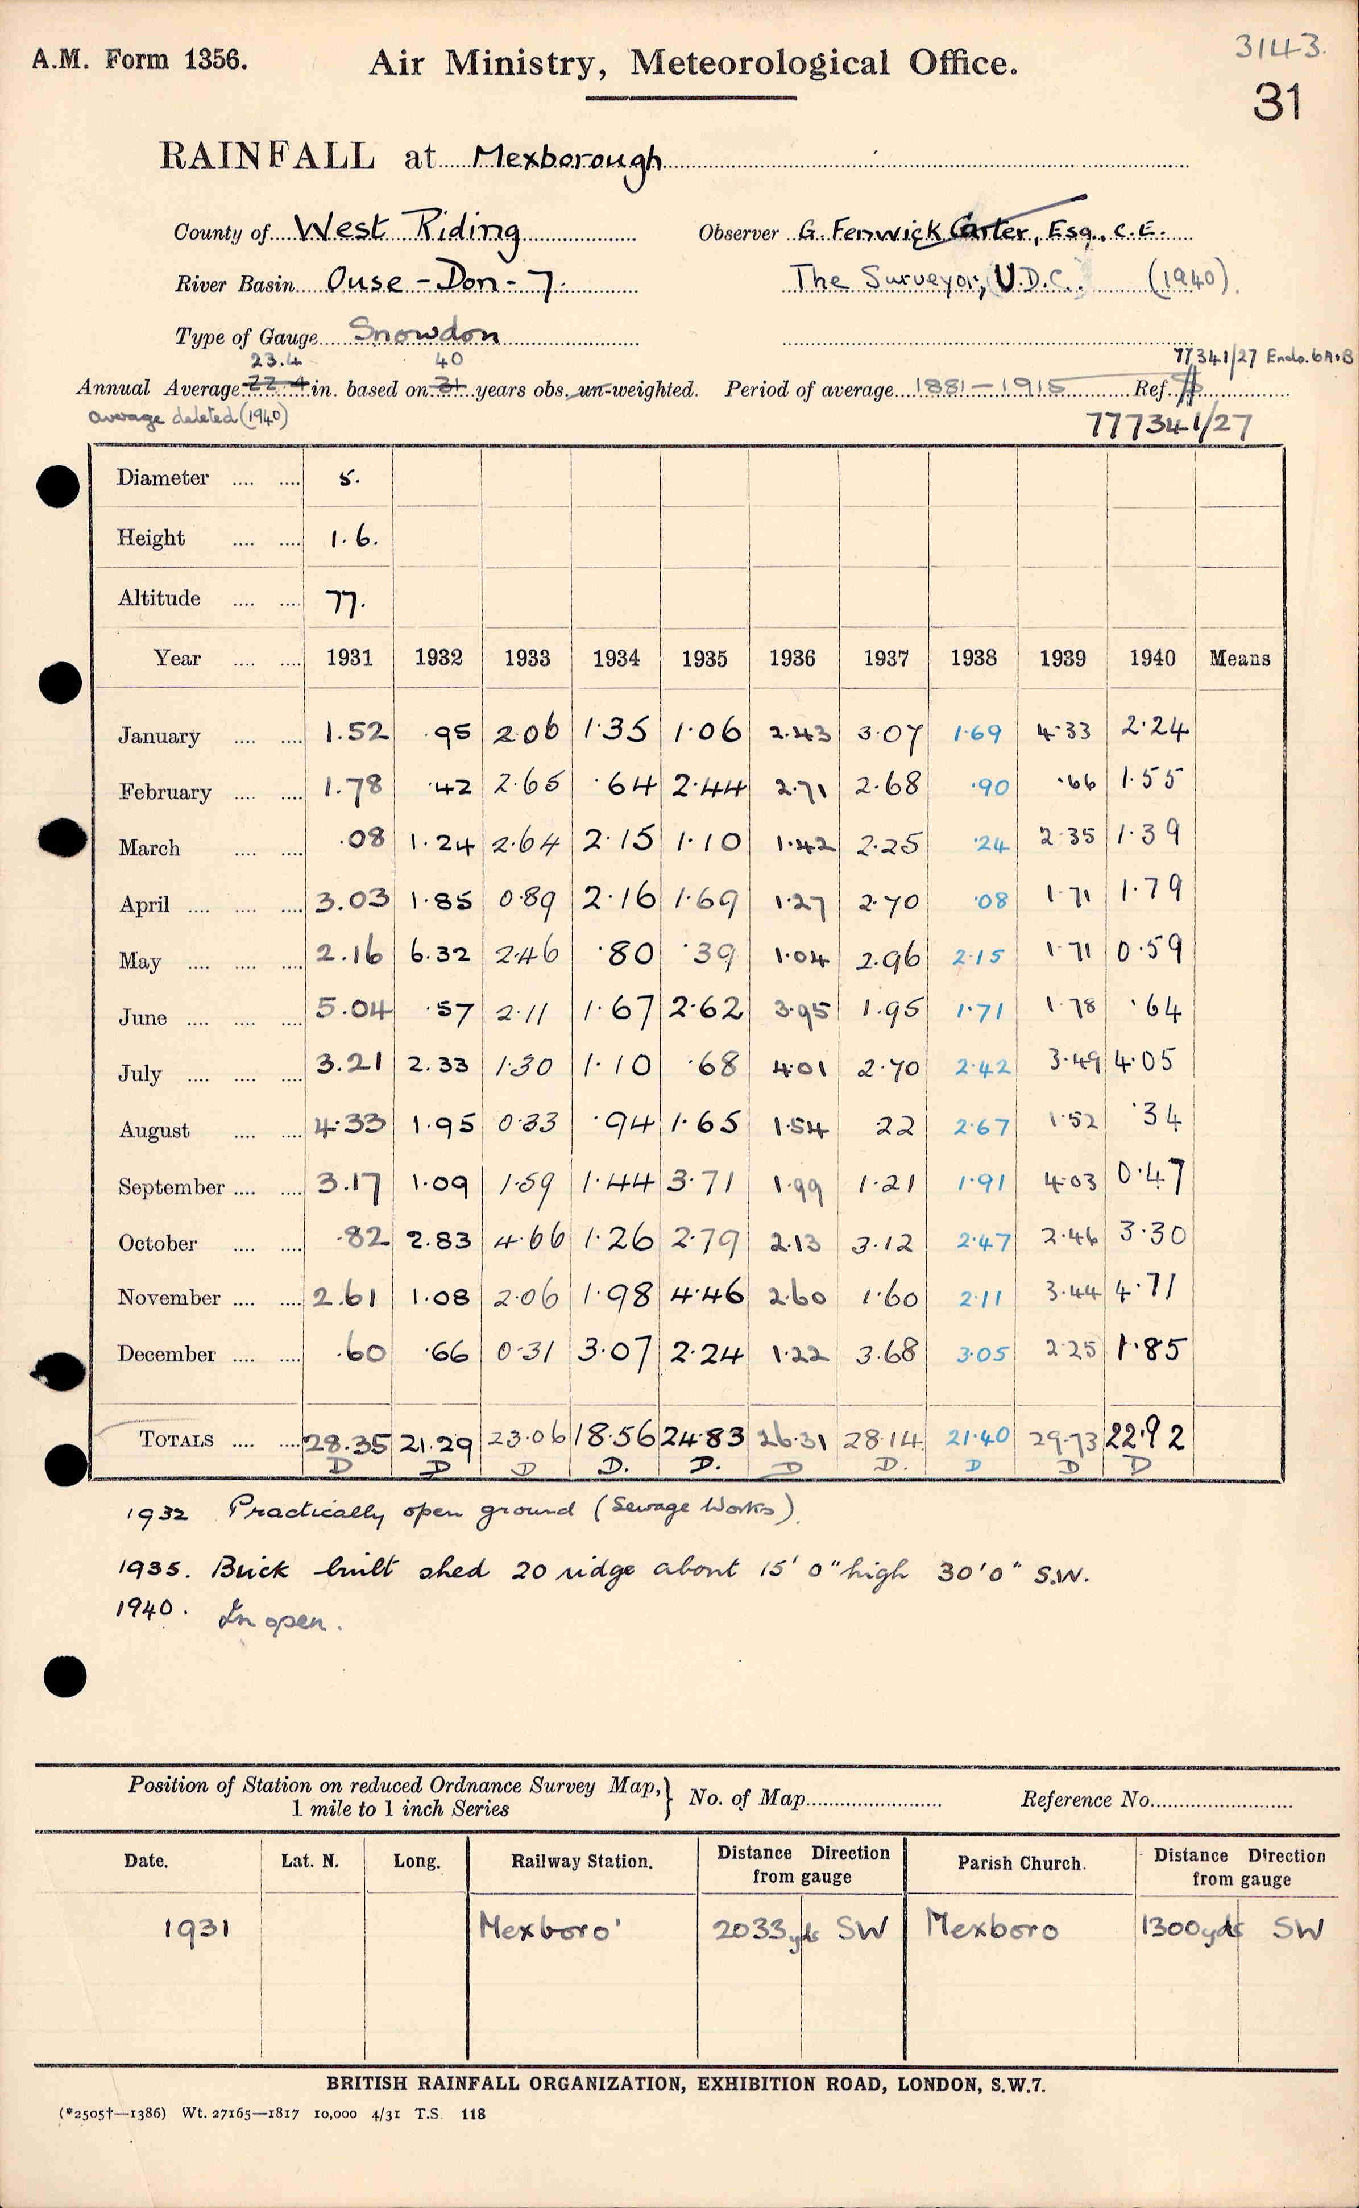 A.M. Form 1356.
Air Ministry, Meteorological Office.
3143.
31
RAINFALL at Mexborough
County of West Riding
Observer G. Fenwick Carter, Esq., C.E.
River Basin Ouse - Don - 7.
The Surveyor, U.D.C. (1940).
Type of Gauge Snowdon
23.4 40
77341/27 Enclo. 6A+B
Annual Average 22.4 in. based on 31 years obs. un-weighted. Period of average 1881-1915 Ref.
average deleted (1940)
777341/27
Diameter .... .... 5.
Height .... .... 1.6.
Altitude .... .... 77.
Year .... .... 1931 1932 1933 1934 1935 1936 1937 1938 1939 1940 Means
January .... .... 1.52 .95 2.06 1.35 1.06 2.43 3.07 1.69 4.33 2.24
February .... .... 1.78 .42 2.65 .64 2.44 2.71 2.68 .90 .66 1.55
March .... .... .08 1.24 2.64 2.15 1.10 1.42 2.25 .24 2.35 1.39
April .... .... .... 3.03 1.85 0.89 2.16 1.69 1.27 2.70 .08 1.71 1.79
May .... .... .... 2.16 6.32 2.46 .80 .39 1.04 2.96 2.15 1.71 0.59
June .... .... .... 5.04 .57 2.11 1.67 2.62 3.95 1.95 1.71 1.78 .64
July .... .... .... 3.21 2.33 1.30 1.10 .68 4.01 2.70 2.42 3.49 4.05
August .... .... 4.33 1.95 0.33 .94 1.65 1.54 .22 2.67 1.52 .34
September .... .... 3.17 1.09 1.59 1.44 3.71 1.99 1.21 1.91 4.03 0.47
October .... .... .82 2.83 4.66 1.26 2.79 2.13 3.12 2.47 2.46 3.30
November .... .... 2.61 1.08 2.06 1.98 4.46 2.60 1.60 2.11 3.44 4.71
December .... .... .60 .66 0.31 3.07 2.24 1.22 3.68 3.05 2.25 1.85
TOTALS .... .... 28.35 21.29 23.06 18.56 24.83 26.31 28.14 21.40 29.73 22.92
D D D D. D. D D. D D D
1932 Practically open ground (Sewage Works).
1935. Brick built shed 20 ridge about 15' 0" high 30' 0" S.W.
1940. In open.
Position of Station on reduced Ordnance Survey Map,} No. of Map Reference No.
1 mile to 1 inch Series
Date. Lat. N. Long. Railway Station. Distance Direction from gauge Parish Church. Distance Direction from gauge
1931 Mexboro' 2033 yds SW Mexboro 1300 yds SW
BRITISH RAINFALL ORGANIZATION, EXHIBITION ROAD, LONDON, S.W.7.
(*2505†—1386) Wt. 27165—1817 10,000 4/31 T.S. 118